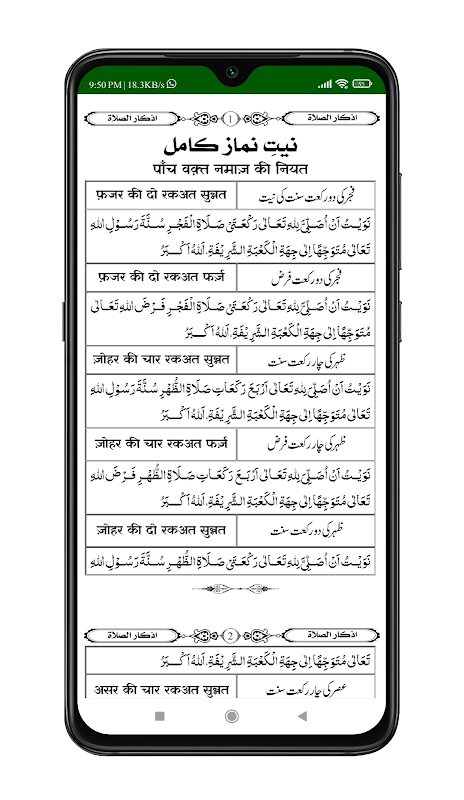 9:50 PM | 18.3KB/s
اذکار الصلاة 1 اذکار الصلاة
نیتِ نماز کامل
पाँच वक़्त नमाज़ की नियत
फ़जर की दो रकअत सुन्नत فجر کی دو رکعت سنت کی نیت
نَوَیْتُ اَنْ اُصَلِّیَ لِلّٰهِ تَعَالٰی رَکْعَتَیْ صَلَاةِ الْفَجْرِ سُنَّةَ رَسُوْلِ اللهِ
تَعَالٰی مُتَوَجِّهًا اِلٰی جِهَةِ الْکَعْبَةِ الشَّرِیْفَةِ. اَللهُ اَکْبَرُ
फ़जर की दो रकअत फर्ज़ فجر کی دو رکعت فرض
نَوَیْتُ اَنْ اُصَلِّیَ لِلّٰهِ تَعَالٰی رَکْعَتَیْ صَلَاةِ الْفَجْرِ فَرْضَ اللهِ تَعَالٰی
مُتَوَجِّهًا اِلٰی جِهَةِ الْکَعْبَةِ الشَّرِیْفَةِ. اَللهُ اَکْبَرُ
ज़ोहर की चार रकअत सुन्नत ظہر کی چار رکعت سنت
نَوَیْتُ اَنْ اُصَلِّیَ لِلّٰهِ تَعَالٰی اَرْبَعَ رَکَعَاتِ صَلَاةِ الظُّهْرِ سُنَّةَ رَسُوْلِ اللهِ
تَعَالٰی مُتَوَجِّهًا اِلٰی جِهَةِ الْکَعْبَةِ الشَّرِیْفَةِ. اَللهُ اَکْبَرُ
ज़ोहर की चार रकअत फर्ज़ ظہر کی چار رکعت فرض
نَوَیْتُ اَنْ اُصَلِّیَ لِلّٰهِ تَعَالٰی اَرْبَعَ رَکَعَاتِ صَلَاةِ الظُّهْرِ فَرْضَ اللهِ
تَعَالٰی مُتَوَجِّهًا اِلٰی جِهَةِ الْکَعْبَةِ الشَّرِیْفَةِ. اَللهُ اَکْبَرُ
ज़ोहर की दो रकअत सुन्नत ظہر کی دو رکعت سنت
نَوَیْتُ اَنْ اُصَلِّیَ لِلّٰهِ تَعَالٰی رَکْعَتَیْ صَلَاةِ الظُّهْرِ سُنَّةَ رَسُوْلِ اللهِ
اذکار الصلاة 2 اذکار الصلاة
تَعَالٰی مُتَوَجِّهًا اِلٰی جِهَةِ الْکَعْبَةِ الشَّرِیْفَةِ. اَللهُ اَکْبَرُ
असर की चार रकअत सुन्नत عصر کی چار رکعت سنت